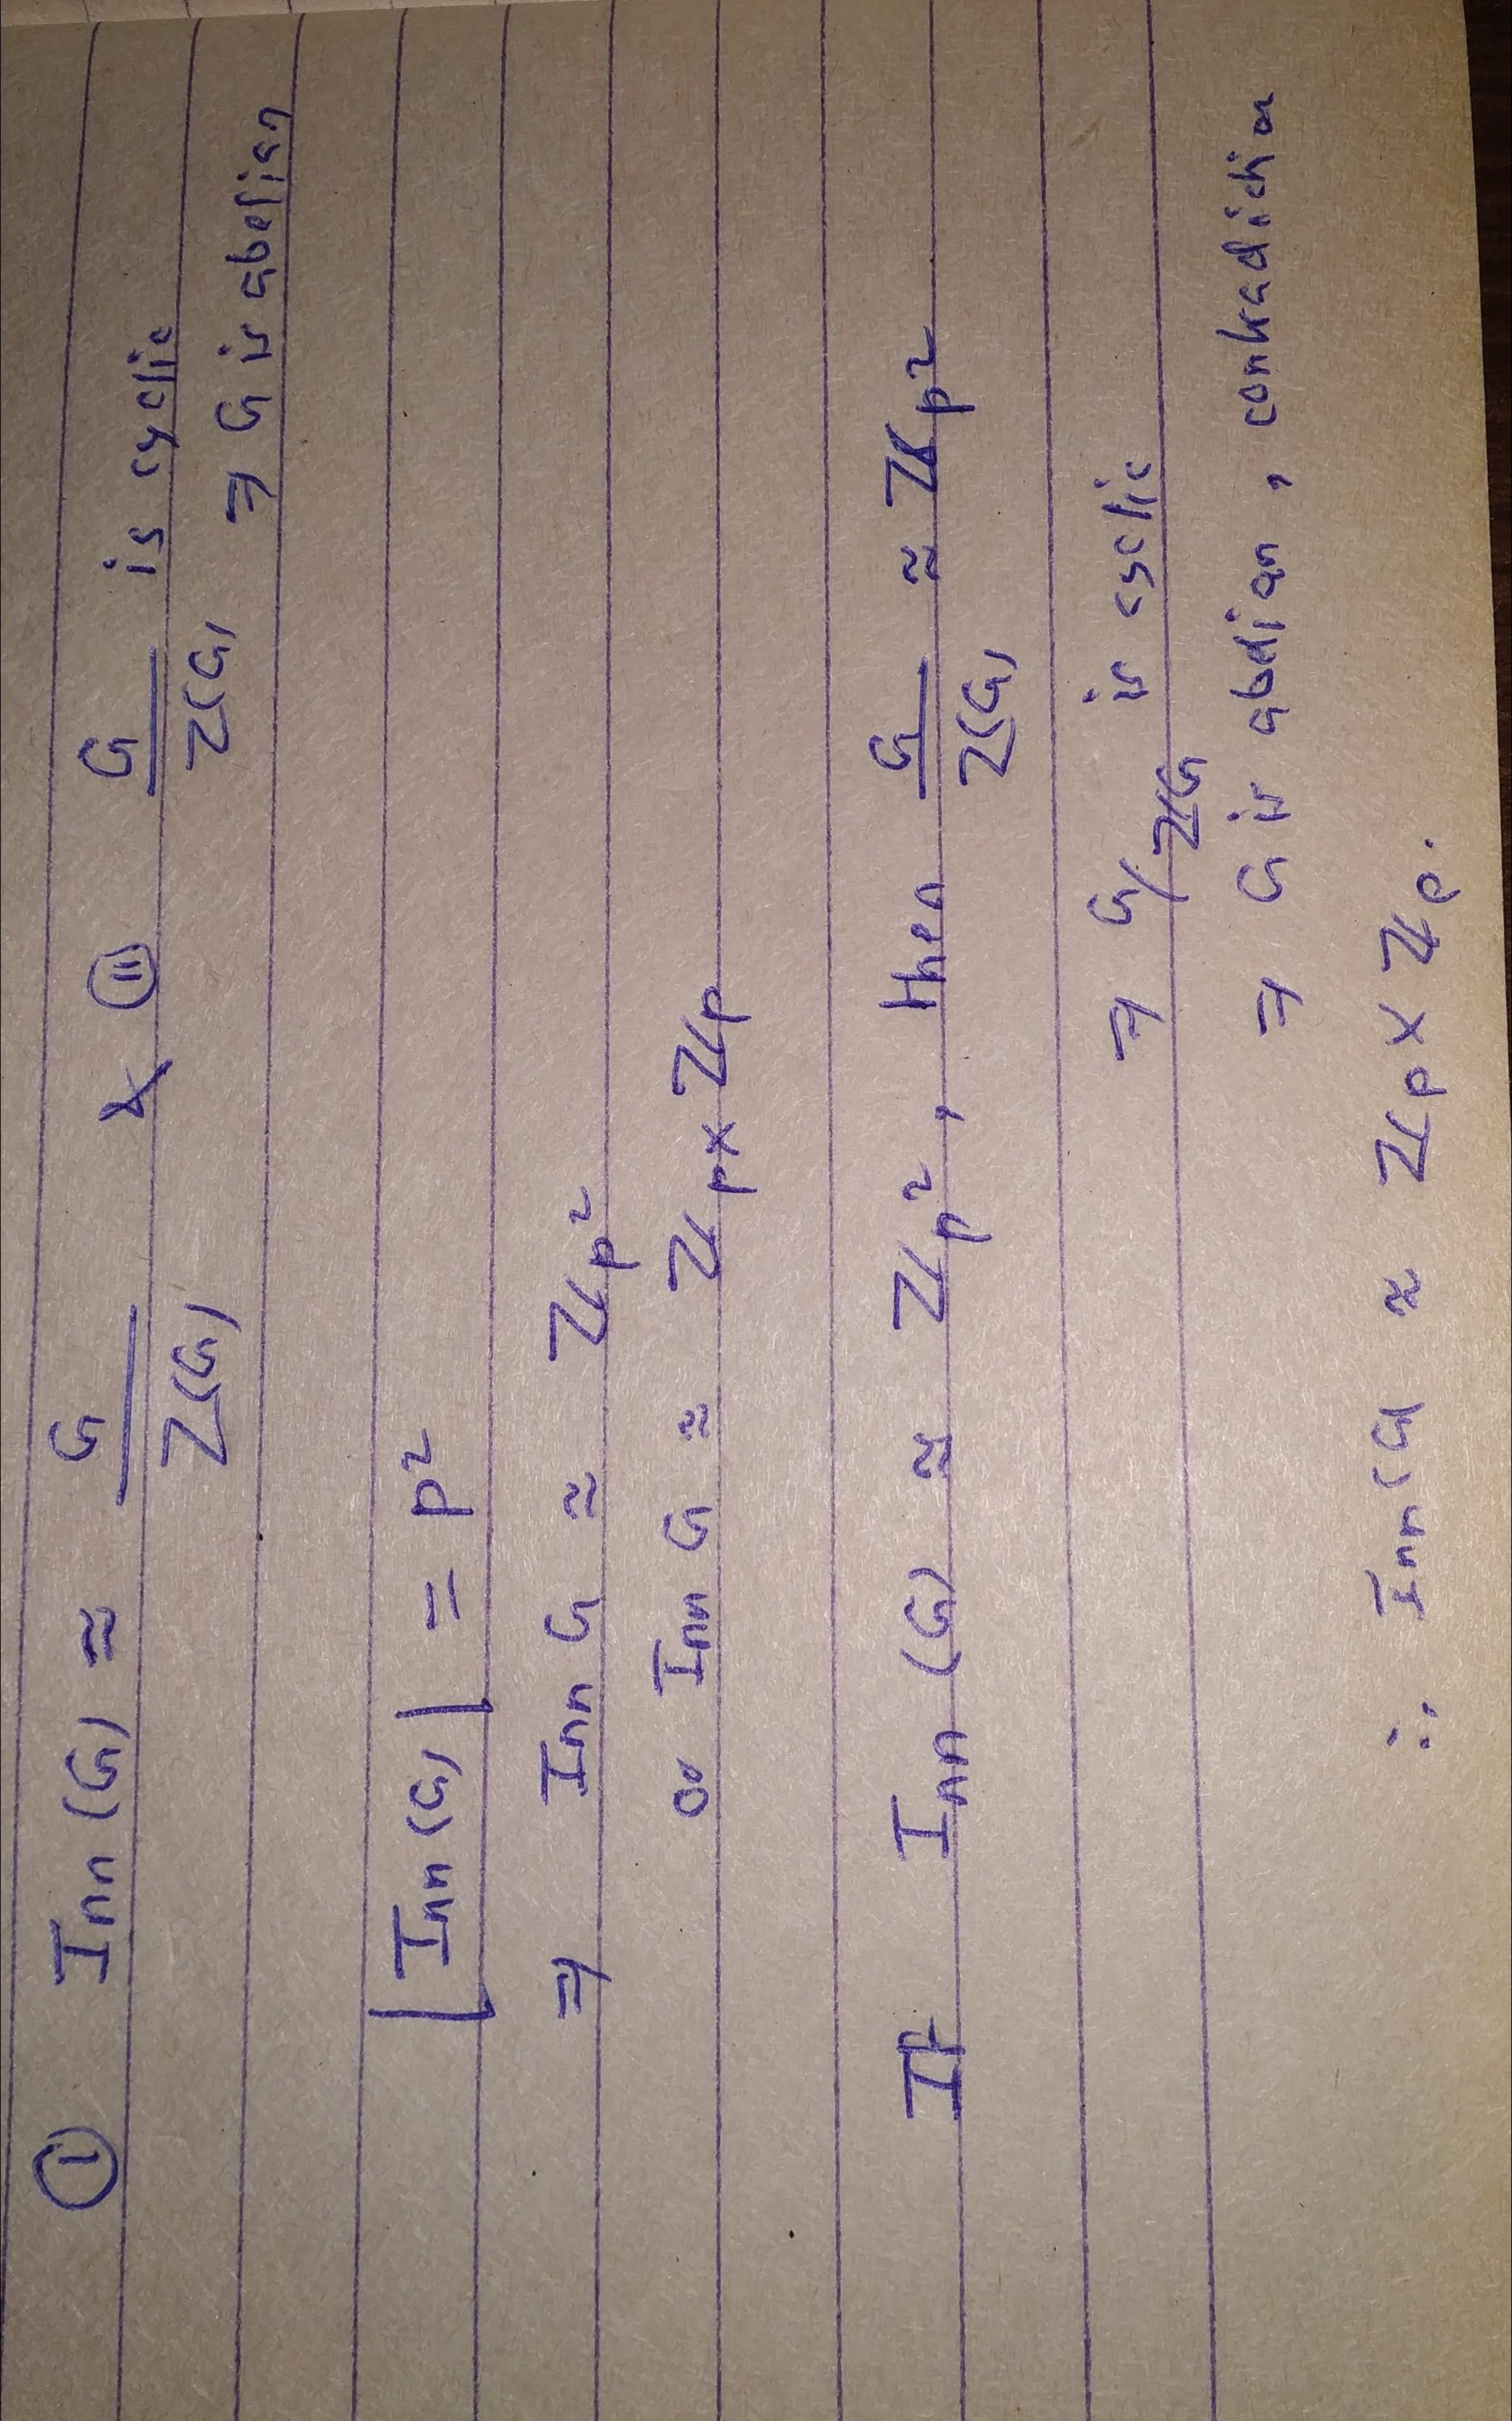 ① Inn (G) ≈ G / Z(G) & ⑪ G / Z(G) is cyclic
⇒ G is abelian
|Inn (G)| = p²
⇒ Inn G ≈ ℤp²
or Inn G ≈ ℤp × ℤp
If Inn (G) ≈ ℤp², then G / Z(G) ≈ ℤp²
⇒ G/ZG is cyclic
⇒ G is abelian, contradiction
∴ Inn(G) ≈ ℤp × ℤp.